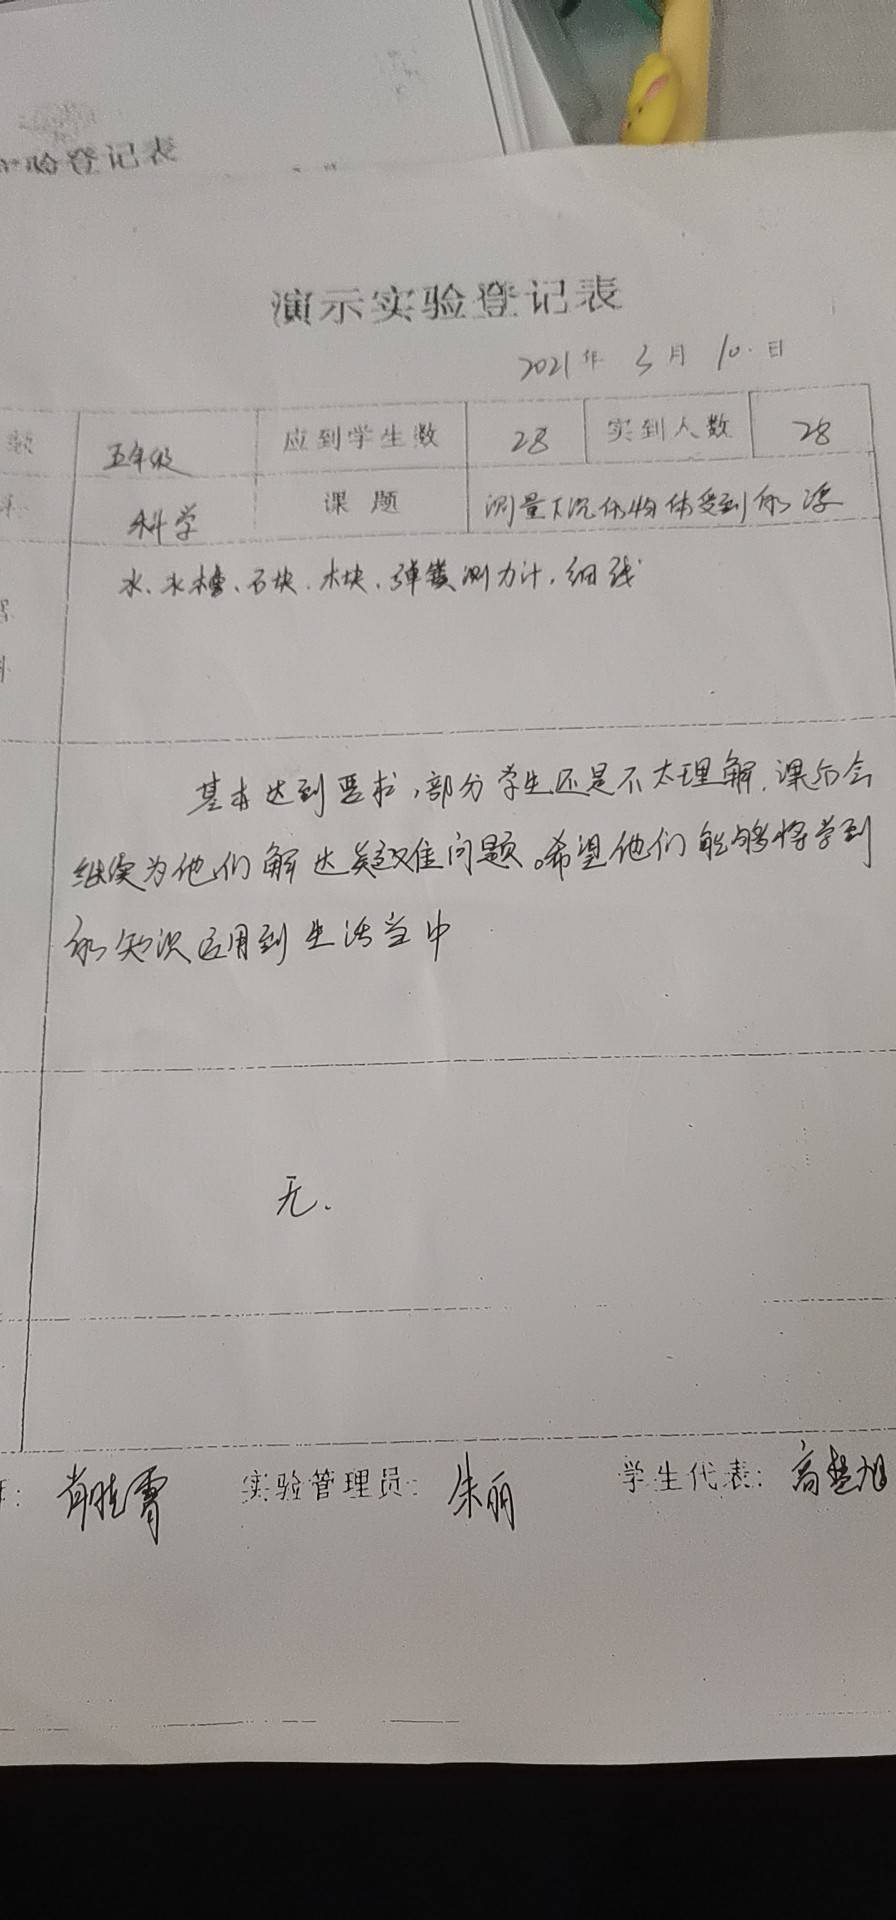 验登记表
演示实验登记表
2021年 3月 10日
数 五年级 应到学生数 28 实到人数 28
科学 课题 测量下沉的物体受到的浮
水、水槽、石块、木块、弹簧测力计、细线
基本达到要求,部分学生还是不太理解,课后会
继续为他们解达疑难问题。希望他们能够将学到
的知识应用到生活当中
无.
肖晓霄 实验管理员: 朱丽 学生代表: 高楚旭